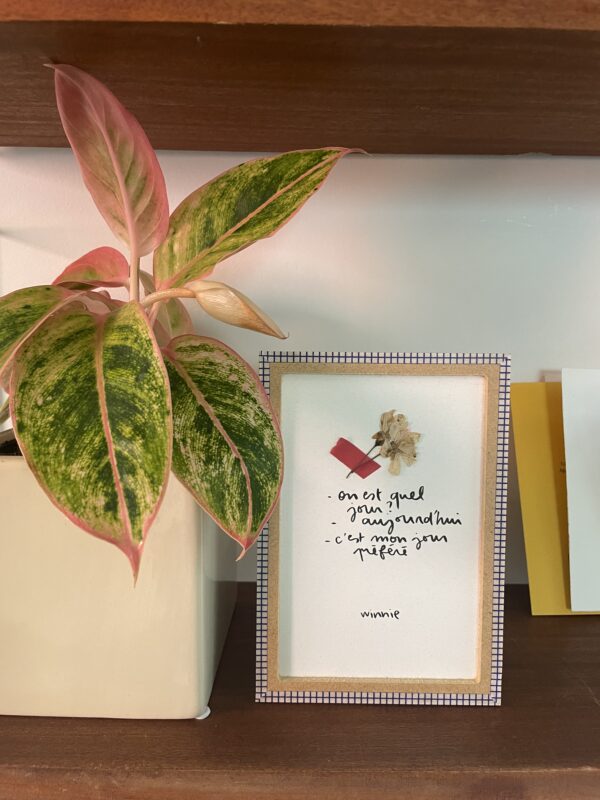 - on est quel
jour?
- aujourd'hui
- c'est mon jour
préféré
winnie